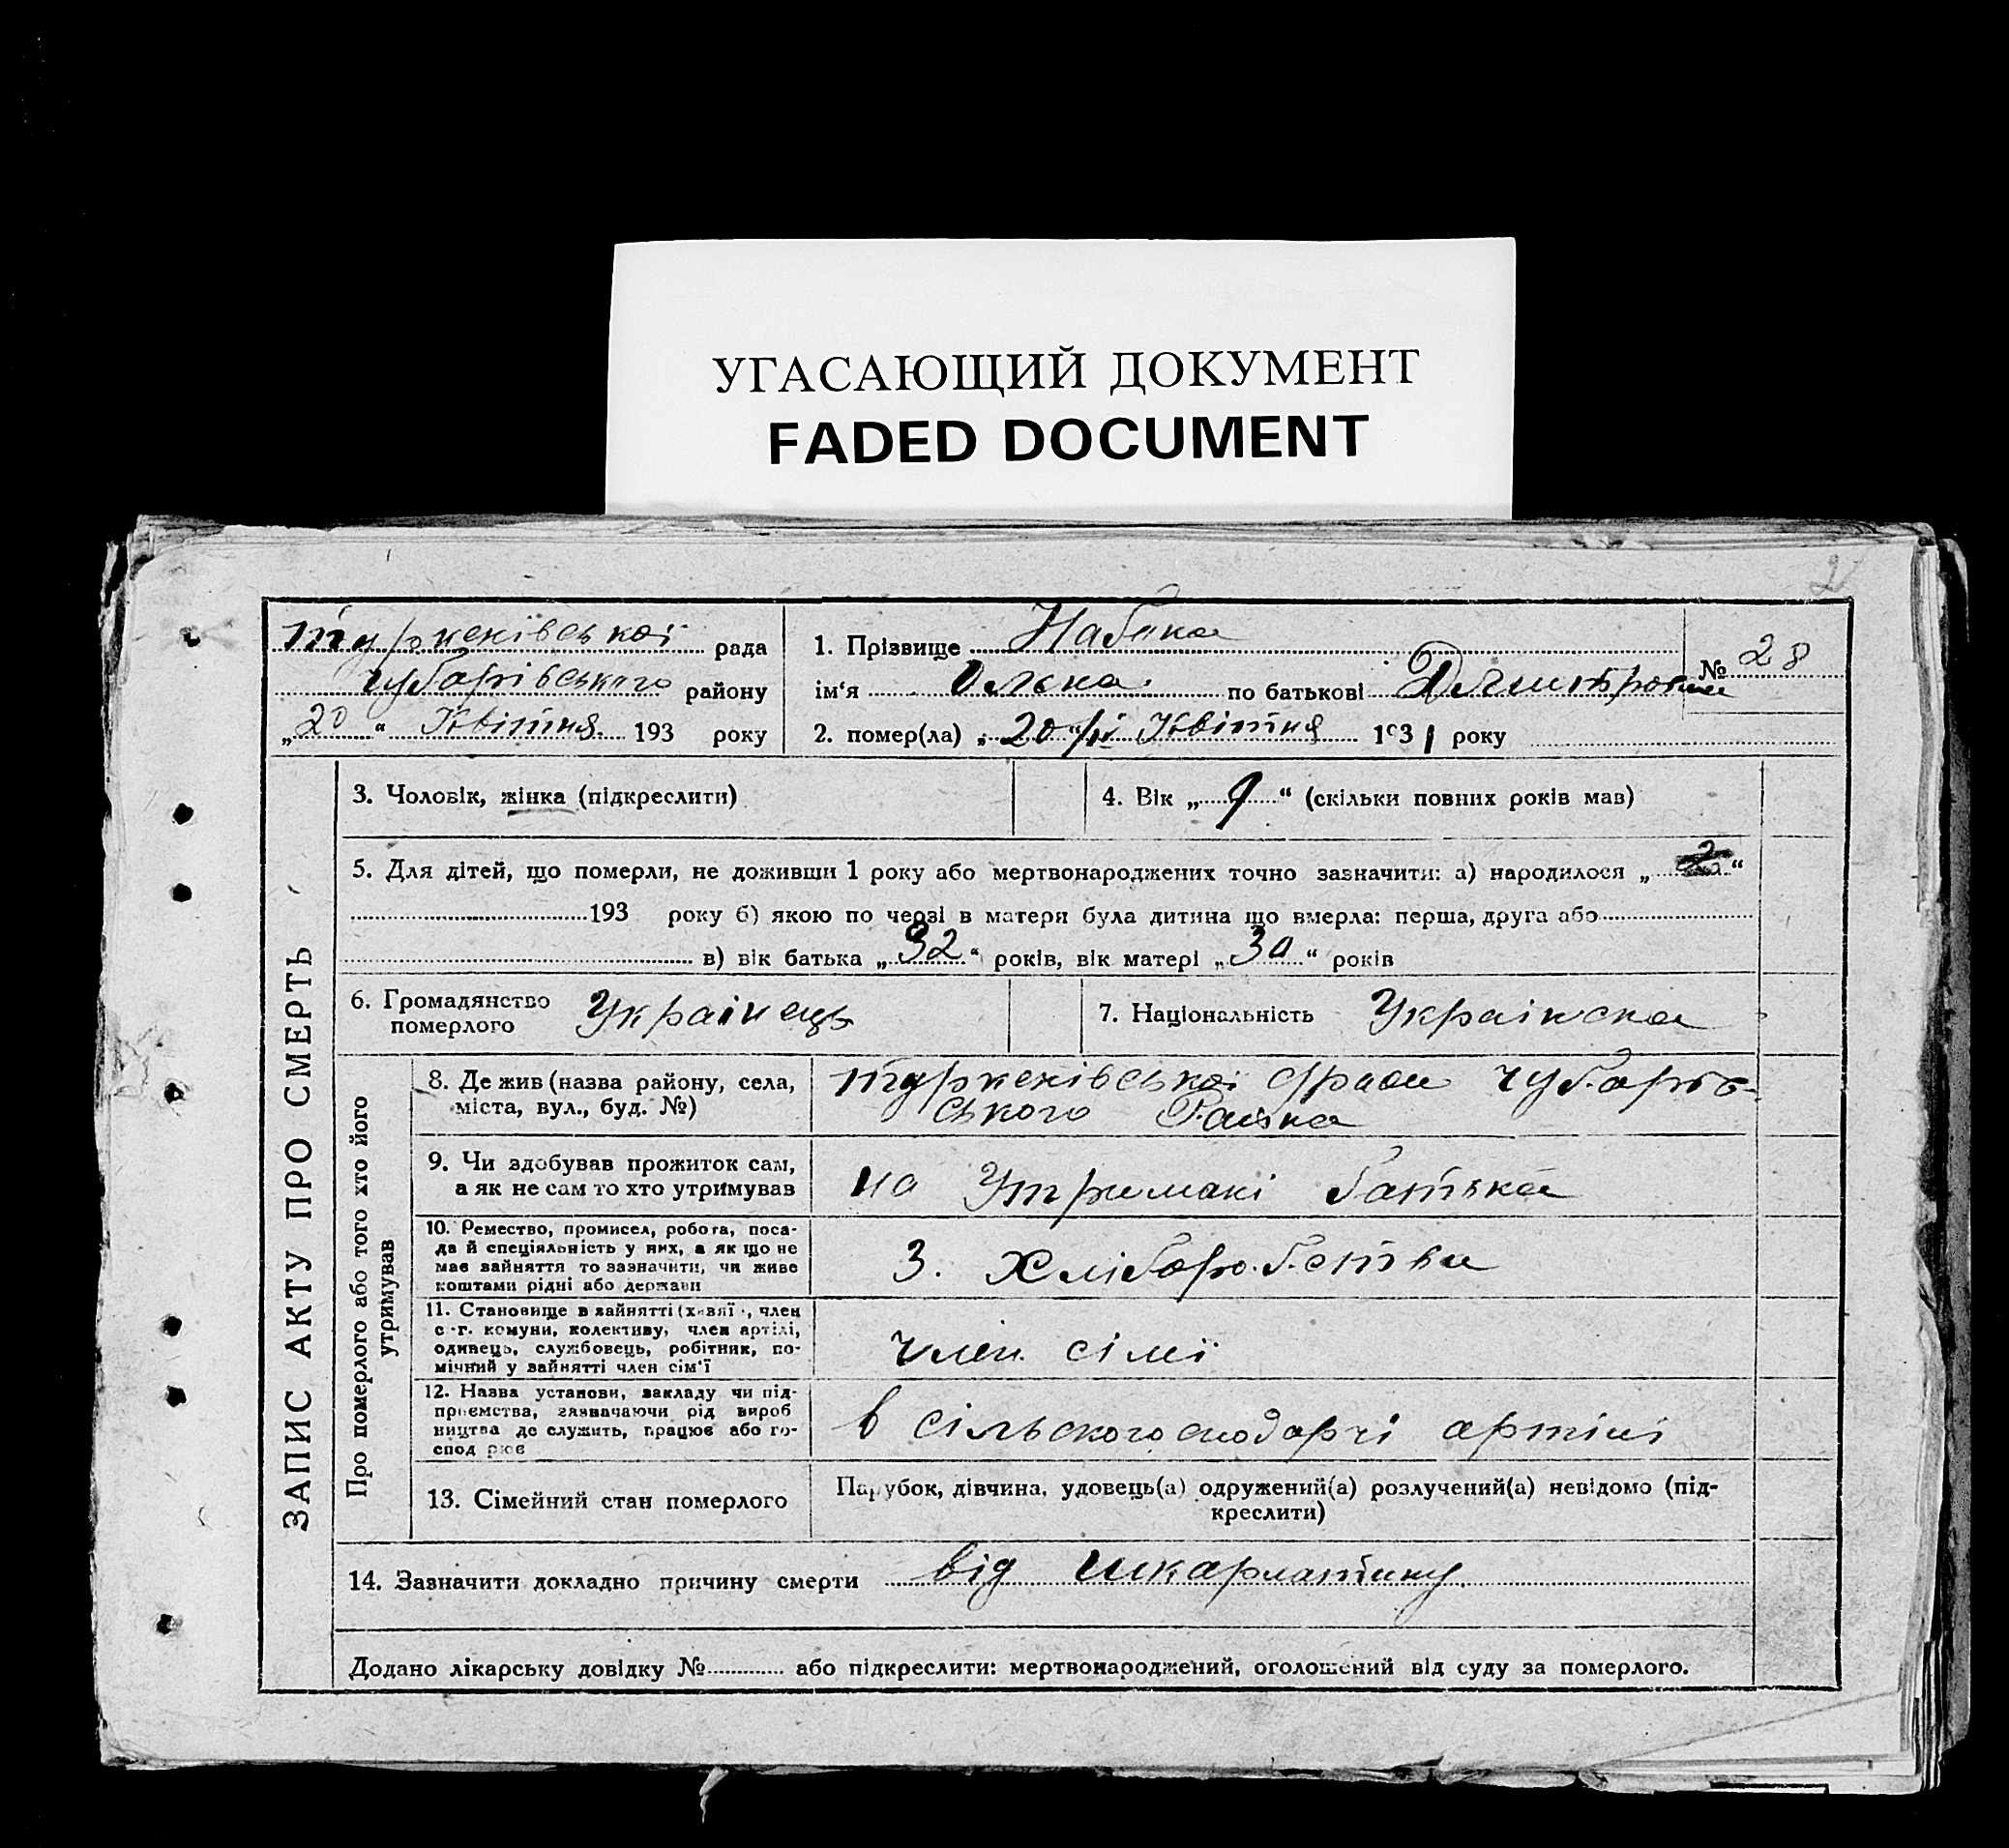 УГАСАЮЩИЙ ДОКУМЕНТ
FADED DOCUMENT
2
туркенівської рада
чубарівського району
„20“ Квітня 193 року
1. Прізвище Набока
№ 28
ім‘я Олька по батькові
2. помер(ла) „20/IV“ Квітня 1931 року
ЗАПИС АКТУ ПРО СМЕРТЬ
3. Чоловік, жінка (підкреслити)
4. Вік „9“ (скільки повних років мав)
5. Для дітей, що померли, не доживши 1 року або мертвонароджених точно зазначити: а) народилося „ “
193 року б) якою по черзі в матери була дитина що вмерла: перша, друга або
в) вік батька „32“ років, вік матері „30“ років
6. Громадянство померлого Українець
7. Національність Українска
Про померлого або того хто його утримував
8. Де жив (назва району, села, міста, вул., буд. №)
туркенівської чубарів-
ського
9. Чи здобував прожиток сам, а як не сам то хто утримував
на Утримані батька
10. Ремество, промисел, робота, поса-
да й спеціяльність у них, а як що не
має зайняття то зазначити, чи живе
коштами рідні або держави
З. Хліборобства
11. Становище в зайнятті (хазяї, член
с.-г. комуни, колективу, член артілі,
одинець, службовець, робітник, по-
мічний у зайнятті член сім‘ї
член сімї
12. Назва установи, закладу чи під-
приємства, зазначаючи рід вироб
ництва де служить, працює або го-
спод рює
в сільскогосподарчі артілі
13. Сімейний стан померлого
Парубок, дівчина, удовець(а) одружений(а) розлучений(а) невідомо (під-
креслити)
14. Зазначити докладно причину смерти від шкарлатини
Додано лікарську довідку № або підкреслити: мертвонароджений, оголошений від суду за померлого.